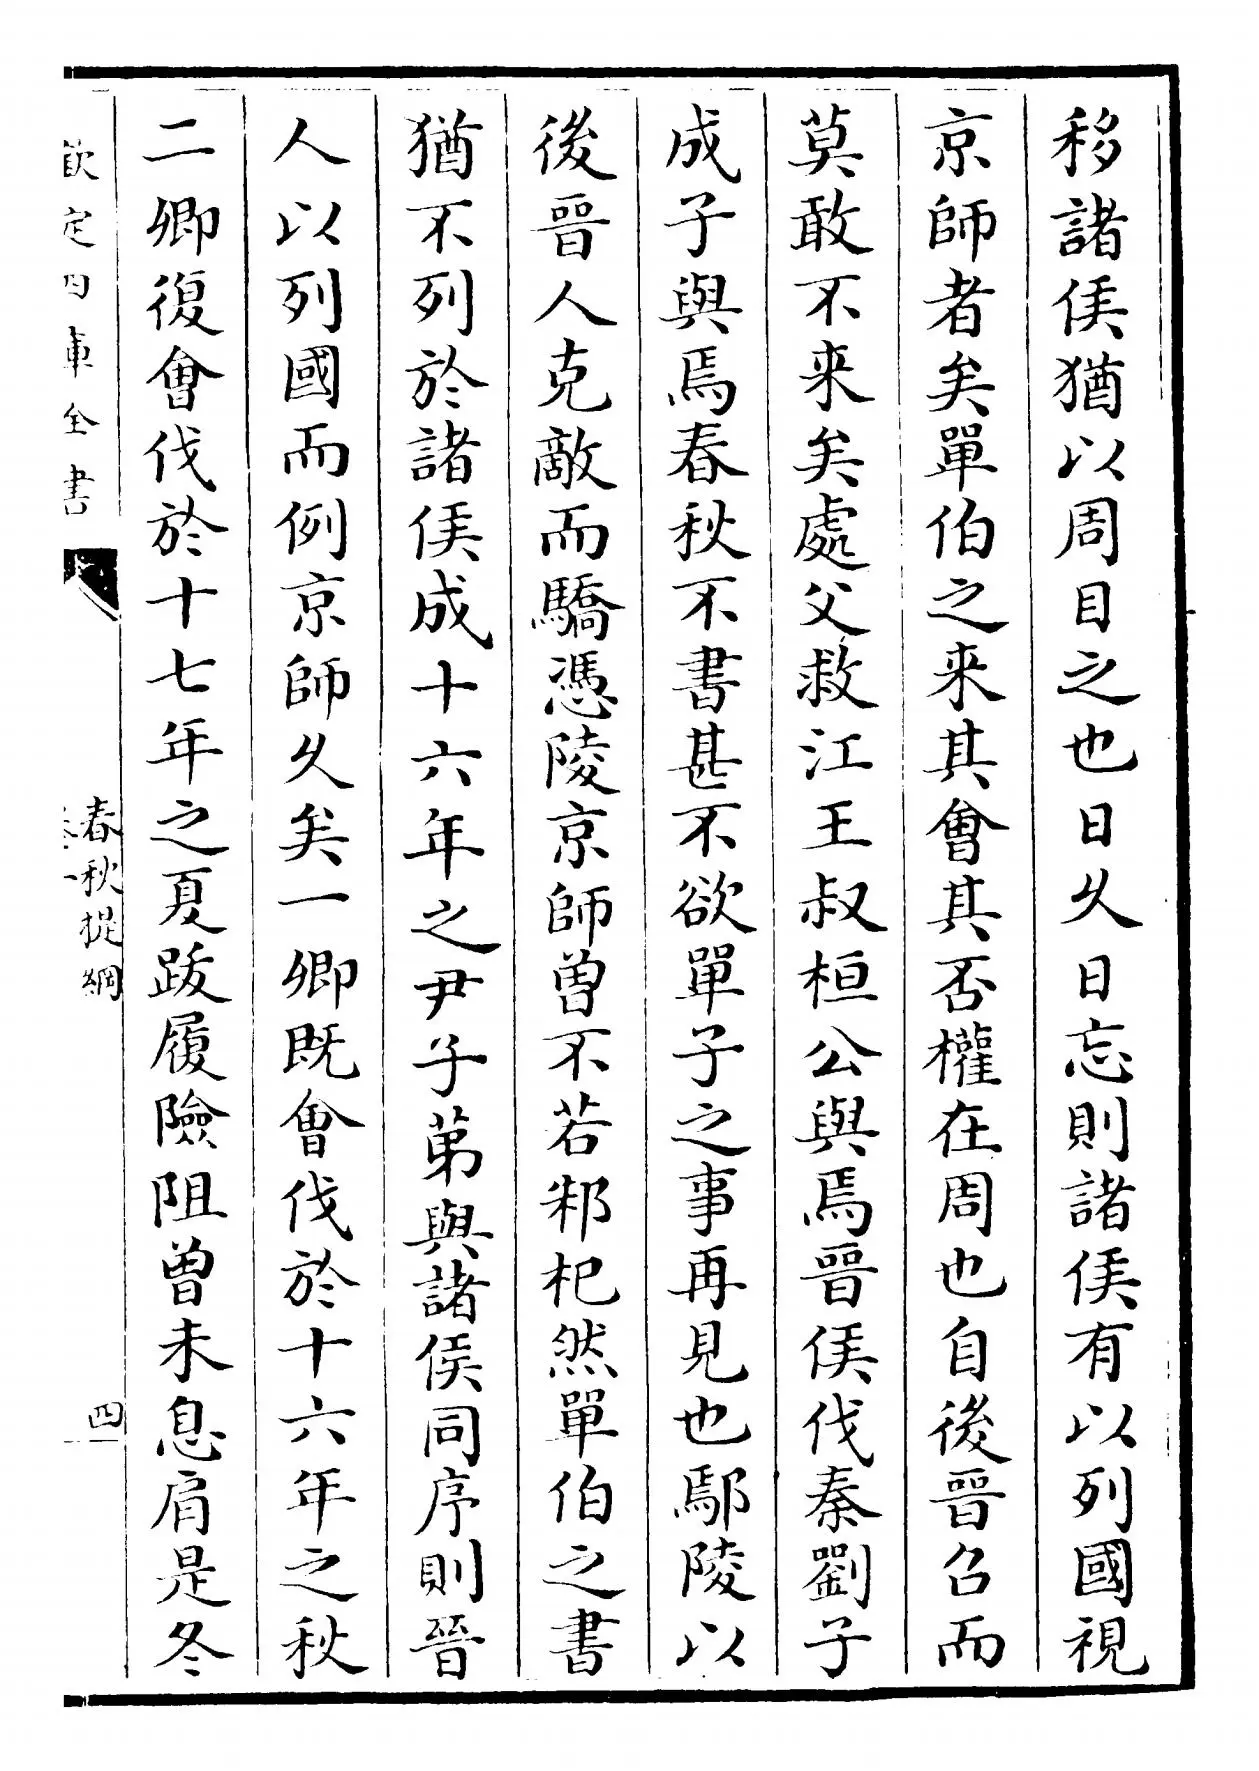 移諸侯猶以周目之也日久日忘則諸侯有以列國視
京師者矣單伯之来其會其否權在周也自後晉召而
莫敢不来矣處父救江王叔桓公與焉晉侯伐秦劉子
成子與焉春秋不書甚不欲單子之事再見也鄢陵以
後晉人克敵而驕憑陵京師曽不若邾杞然單伯之書
猶不列於諸侯成十六年之尹子苐與諸侯同序則晉
人以列國而例京師久矣一卿既會伐於十六年之秋
二卿復會伐於十七年之夏跋履險阻曽未息肩是冬
欽定四庫全書
春秋提綱
卷一
四